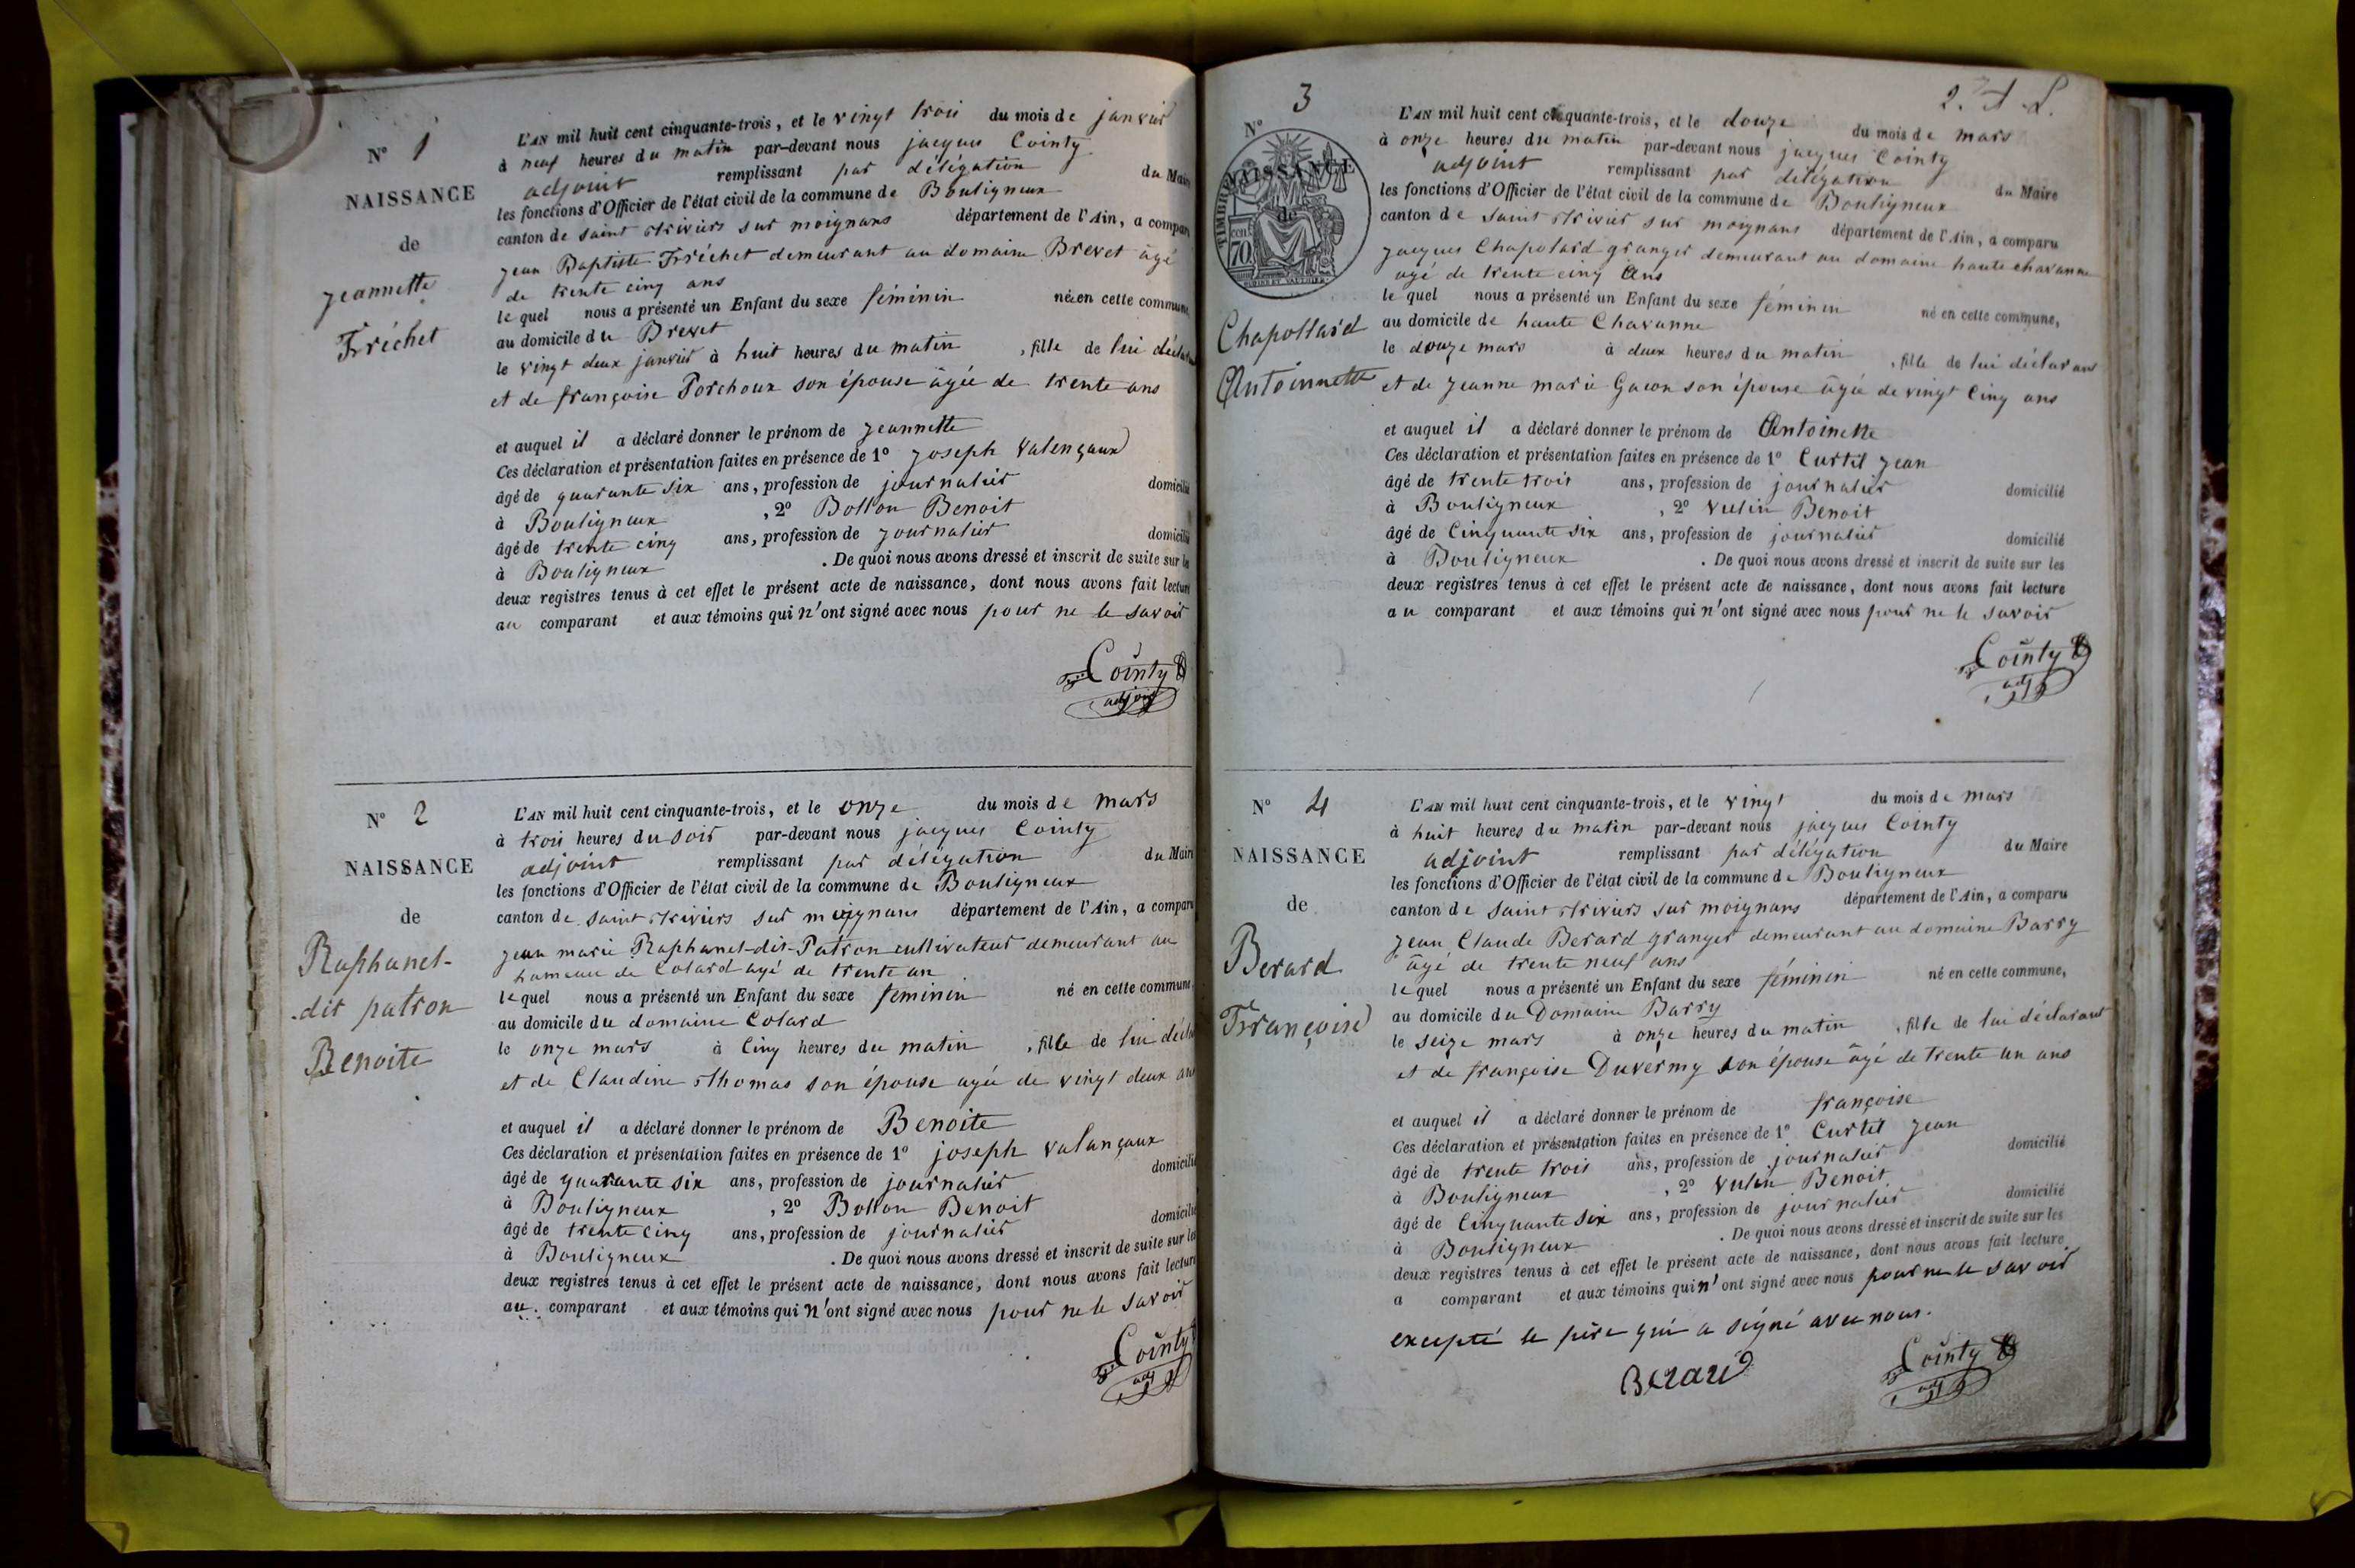 N° 1
NAISSANCE
de
jeannette
Fréchet
L'AN mil huit cent cinquante-trois, et le vingt trois du mois de janvier
à neuf heures du matin par-devant nous jacques Cointy
adjoint remplissant par délégation du Maire
les fonctions d'Officier de l'état civil de la commune de Bouligneux
canton de saint trivier sur moignans département de l'Ain, a compar
jean Baptiste Fréchet demeurant au domaine Brevet âgé
de trente cinq ans
le quel nous a présenté un Enfant du sexe féminin née en cette commune,
au domicile du Brevet
le vingt deux janvier à huit heures du matin , fille de lui déclara
et de françoise Porchoux son épouse âgée de trente ans
et auquel il a déclaré donner le prénom de jeannette
Ces déclaration et présentation faites en présence de 1° joseph Valençaux
âgé de quarante six ans, profession de journalier domicilié
à Bouligneux , 2° Bollon Benoit
âgé de trente cinq ans, profession de journalier domicilié
à Bouligneux . De quoi nous avons dressé et inscrit de suite sur les
deux registres tenus à cet effet le présent acte de naissance, dont nous avons fait lecture
au comparant et aux témoins qui n'ont signé avec nous pour ne le savoir
Cointy
adjoint
N° 2
NAISSANCE
de
Raphanel-
dit patron
Benoite
L'AN mil huit cent cinquante-trois, et le onze du mois de mars
à trois heures du soir par-devant nous jacques Cointy
adjoint remplissant par délégation du Maire
les fonctions d'Officier de l'état civil de la commune de Bouligneux
canton de saint trivier sur moignans département de l'Ain, a compar
jean marie Raphanel-dit-Patron cultivateur demeurant au
hameau de Colard agé de trente un
le quel nous a présenté un Enfant du sexe féminin né en cette commune,
au domicile du domaine Colard
le onze mars à cinq heures du matin , fille de lui décla
et de Claudine thomas son épouse agée de vingt deux ans
et auquel il a déclaré donner le prénom de Benoite
Ces déclaration et présentation faites en présence de 1° joseph valançaux
âgé de quarante six ans, profession de journalier domicilié
à Bouligneux , 2° Bollon Benoit
âgé de trente cinq ans, profession de journalier domicilié
à Bouligneux . De quoi nous avons dressé et inscrit de suite sur les
deux registres tenus à cet effet le présent acte de naissance, dont nous avons fait lecture
au comparant et aux témoins qui n'ont signé avec nous pour ne le savoir
Cointy
adj
2. A. L.
N° 3
NAISSANCE
de
TIMBRE
70 cent
Chapollard
Antoinnette
L'AN mil huit cent cinquante-trois, et le douze du mois de mars
à onze heures du matin par-devant nous jacques Cointy
adjoint remplissant par délégation du Maire
les fonctions d'Officier de l'état civil de la commune de Bouligneux
canton de saint trivier sur moignans département de l'Ain, a comparu
jacques Chapolard granger demeurant au domaine haute chavanne
agé de trente cinq ans
le quel nous a présenté un Enfant du sexe féminin né en cette commune,
au domicile de haute Chavanne
le douze mars à deux heures du matin , fille de lui déclarant
et de jeanne marie Gacon son épouse âgée de vingt cinq ans
et auquel il a déclaré donner le prénom de Antoinette
Ces déclaration et présentation faites en présence de 1° Curtil jean
âgé de trente trois ans, profession de journalier domicilié
à Bouligneux , 2° vulin Benoit
âgé de cinquante six ans, profession de journalier domicilié
à Bouligneux . De quoi nous avons dressé et inscrit de suite sur les
deux registres tenus à cet effet le présent acte de naissance, dont nous avons fait lecture
au comparant et aux témoins qui n'ont signé avec nous pour ne le savoir
Cointy
adj
N° 4
NAISSANCE
de
Berard
Françoise
L'AN mil huit cent cinquante-trois, et le vingt du mois de mars
à huit heures du matin par-devant nous jacques Cointy
adjoint remplissant par délégation du Maire
les fonctions d'Officier de l'état civil de la commune de Bouligneux
canton de saint trivier sur moignans département de l'Ain, a comparu
jean Claude Berard granger demeurant au domaine Barry
âgé de trente neuf ans
le quel nous a présenté un Enfant du sexe féminin né en cette commune,
au domicile du Domaine Barry
le seize mars à onze heures du matin , fille de lui déclarant
et de françoise Duverny son épouse âgé de trente un ans
et auquel il a déclaré donner le prénom de françoise
Ces déclaration et présentation faites en présence de 1° Curtil jean
âgé de trente trois ans, profession de journalier domicilié
à Bouligneux , 2° vulin Benoit
âgé de cinquante six ans, profession de journalier domicilié
à Bouligneux . De quoi nous avons dressé et inscrit de suite sur les
deux registres tenus à cet effet le présent acte de naissance, dont nous avons fait lecture
a comparant et aux témoins qui n'ont signé avec nous pour ne le savoir
excepté le père qui a signé avec nous.
Berard
Cointy
adj